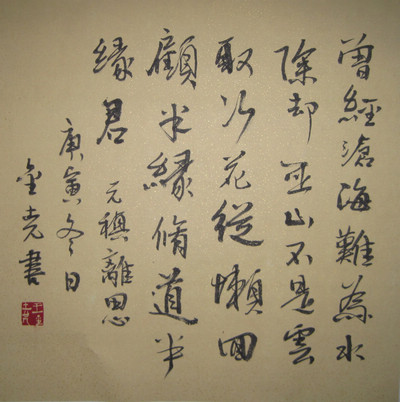 曾經滄海難為水
除却巫山不是雲
取次花從懶回
顧半緣脩道半
緣君 元稹離思
庚寅冬日
金尧書